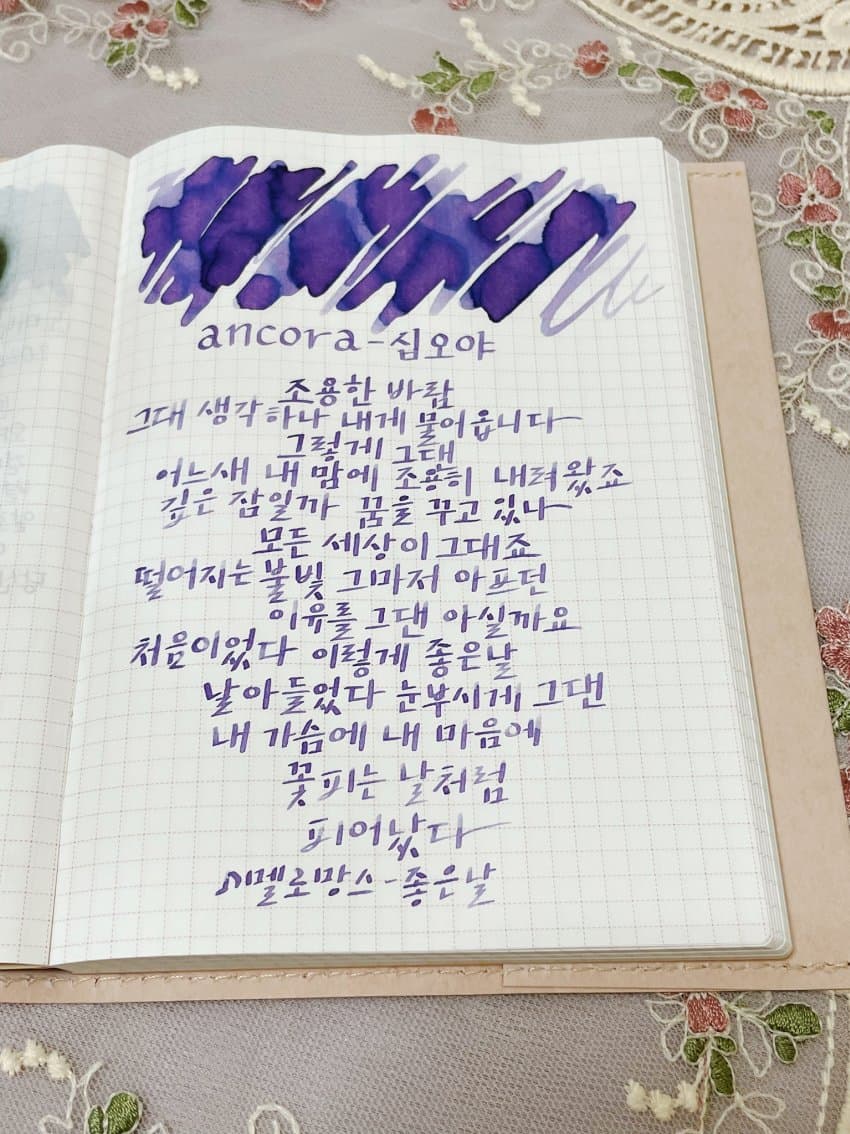 ancora-십오야
조용한 바람
그대 생각하나 내게 물어옵니다
그렇게 그대
어느새 내 맘에 조용히 내려왔죠
깊은 잠일까 꿈을 꾸고 있나
모든 세상이 그대죠
떨어지는 불빛 그마저 아프던
이유를 그댄 아실까요
처음이었다 이렇게 좋은날
날아들었다 눈부시게 그댄
내 가슴에 내 마음에
꽃피는 날처럼
피어났다
♪멜로망스-좋은날